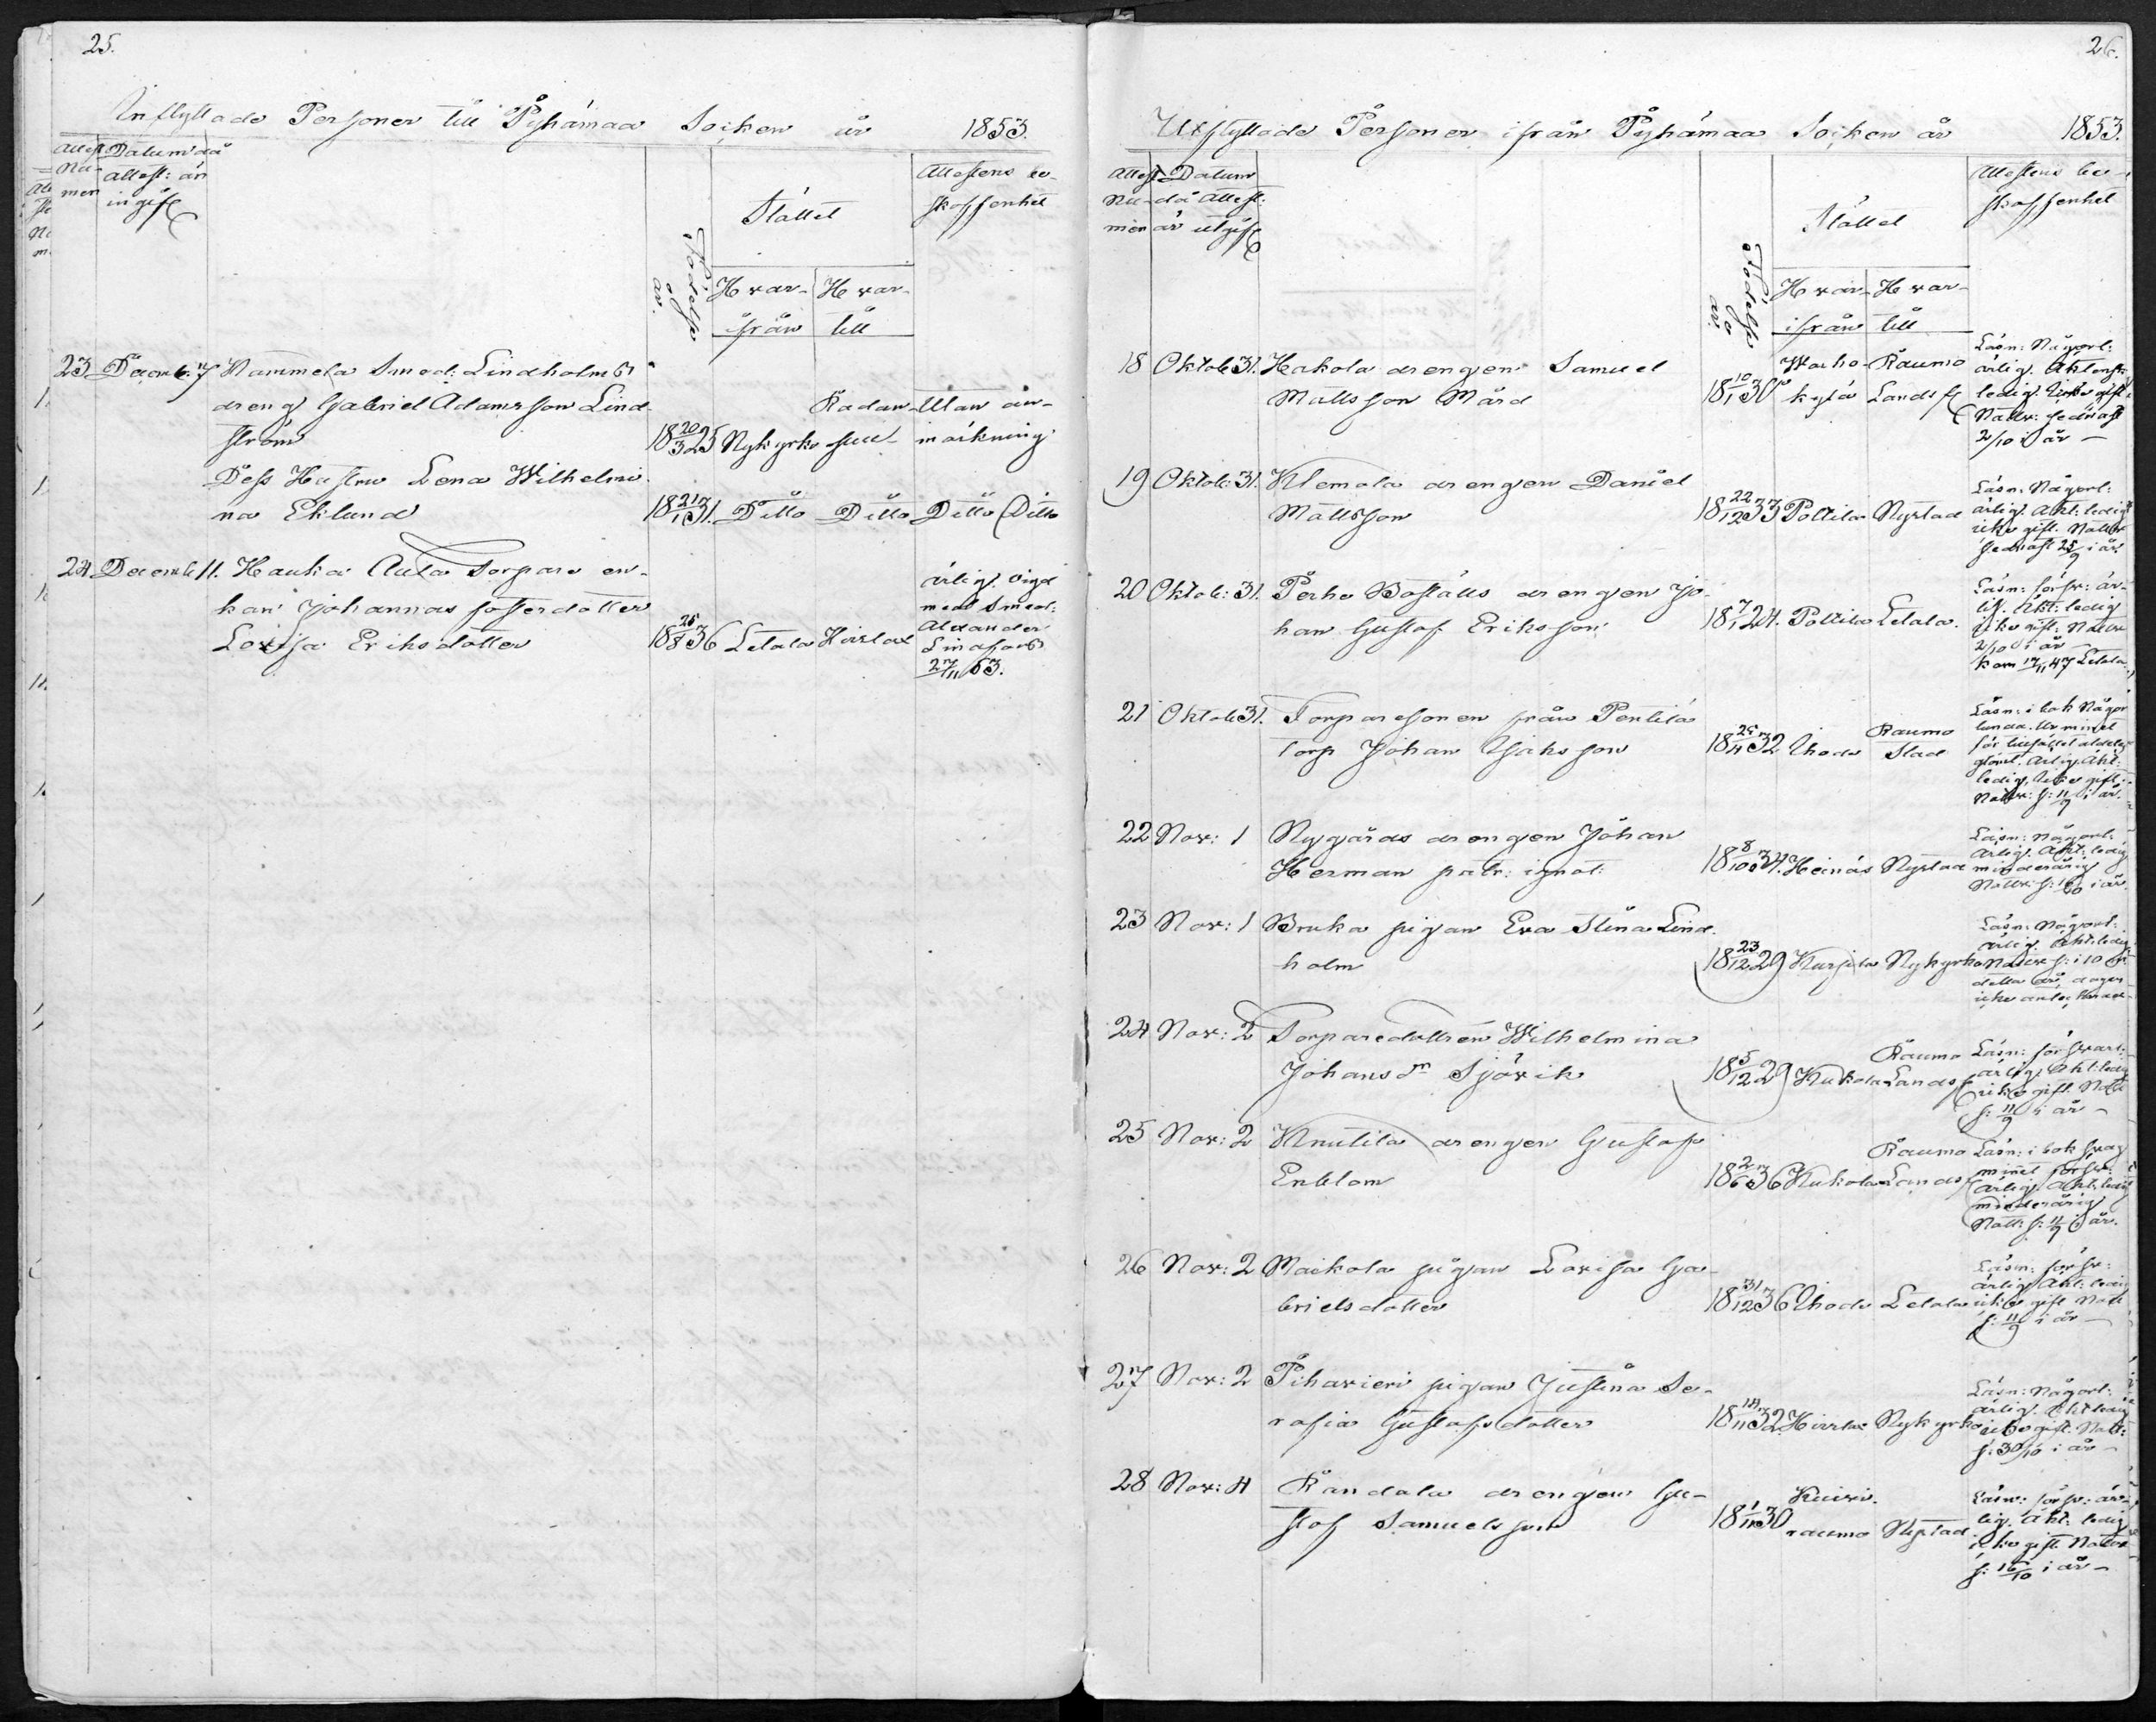 25.
Inflyttade Personer till Pyhämaa Socken år 1853.
Attest Nu- mer
Datum då attest: är ingift
Födelse år.
Stället
Hvar- ifrån
Hvar- till
Attestens be- skaffenhet
23 Decemb: 7 Kammela Smed: Lindholms
dreng Gabriel Adamsson Lind-
ström 18 20/3 25 Nykyrko Radan- suu Utan an- märkning
Dess Hustru Lena Wilhelmi-
na Eklund 18 21/1 31. Ditto Ditto Ditto Ditto
24 Decemb 11. Hauka Aula torpare en-
kan Johannas fosterdotter
Lovisa Eriksdotter 18 28/8 36 Letala Hirslax
ärlig. vigd
med Smed:
Alexander
Lindfors
27/11 53.
26.
Utflyttade Personer ifrån Pyhämaa Socken år 1853.
Attest Nu- mer
Datum då Attest: är utgift
Födelse år.
Stället
Hvar- ifrån
Hvar- till
Attestens be- skaffenhet
18 Oktob 31. Hakola drengen Samuel
Mattsson Mård 18 10/1 30 Warho- kylä Raumo Lands f
Läsn: Någorl:
ärlig. Äktensk:
ledig. Icke gift.
Nattv: sednast
2/10 i år —
19 Oktob: 31. Klemola drengen Daniel
Mattsson 18 22/12 33 Polttila Nystad
Läsn: Någorl:
ärlig. Äkt: ledig
icke gift. Nattv
sednast 25/9 i år
20 Oktob: 31. Perho Boställs drengen Jo-
han Gustaf Eriksson 18 7/1 24. Polttila Letala.
Läsn: försv: är-
lig. Äkt: ledig
icke gift. Nattv
2/10 i år —
kom 17/11 47 Letala
21 Oktob 31. Torparesonen från Pentilä
torp Johan Isaksson 18 25/11 32 Ihode Raumo Stad
Läsn: i bok Någor
lunda. Ur minnet
för tillfället aldeles
glömt. Ärlig. Äkt:
ledig. Icke gift.
Nattv: s: 11/9 i år.
22 Nov: 1 Nygårds drengen Johan
Herman patr: ignot: 18 8/10 34. Heinäs Nystad
Läsn: Någorl:
Ärlig. Äkt: ledig
minderårig
Nattv: s: 16/10 i år.
23 Nov: 1 Bruka pigan Eva Stina Lind-
holm 18 23/12 29 Kursila Nykyrko
Läsn: Någorl:
ärlig. Äkt: ledig
Nattv s: i 10
detta år, dagen
icke
24 Nov: 2 Torparedottren Wilhelmina
Johansdr Sjövik 18 5/12 29 Kukola Raumo Lands f
Läsn: försvarl:
ärlig. Äkt: ledig
icke gift. Nattv
s: 11/9 i år —
25 Nov: 2 Knutila drengen Gustaf
Enblom 18 2/6 36 Kukola Raumo Lands f
Läsn: i bok svag
minnet försv:
ärlig. Äkt: ledig
minderårig
Natt: s: 11/9 i år.
26 Nov: 2 Maikola pigan Lovisa Ga-
brielsdotter 18 31/12 36 Ihode Letala
Läsn: försv:
ärlig. Äkt: ledig
icke gift Natt
s: 11/9 i år —
27 Nov: 2 Pihavieri pigan Justina Se-
rafia Gustafsdotter 18 14/11 32 Hirslax Nykyrko
Läsn: Någorl:
ärlig. Äkt ledig
icke gift. Natt:
s: 30/10 i år —
28 Nov: 4 Randala drengen Gu-
staf Samuelsson 18 1/11 30 Kuivi- raumo Nystad
Läsn: försv: är-
lig. Äkt: ledig
icke gift. Nattv
s: 16/10 i år —